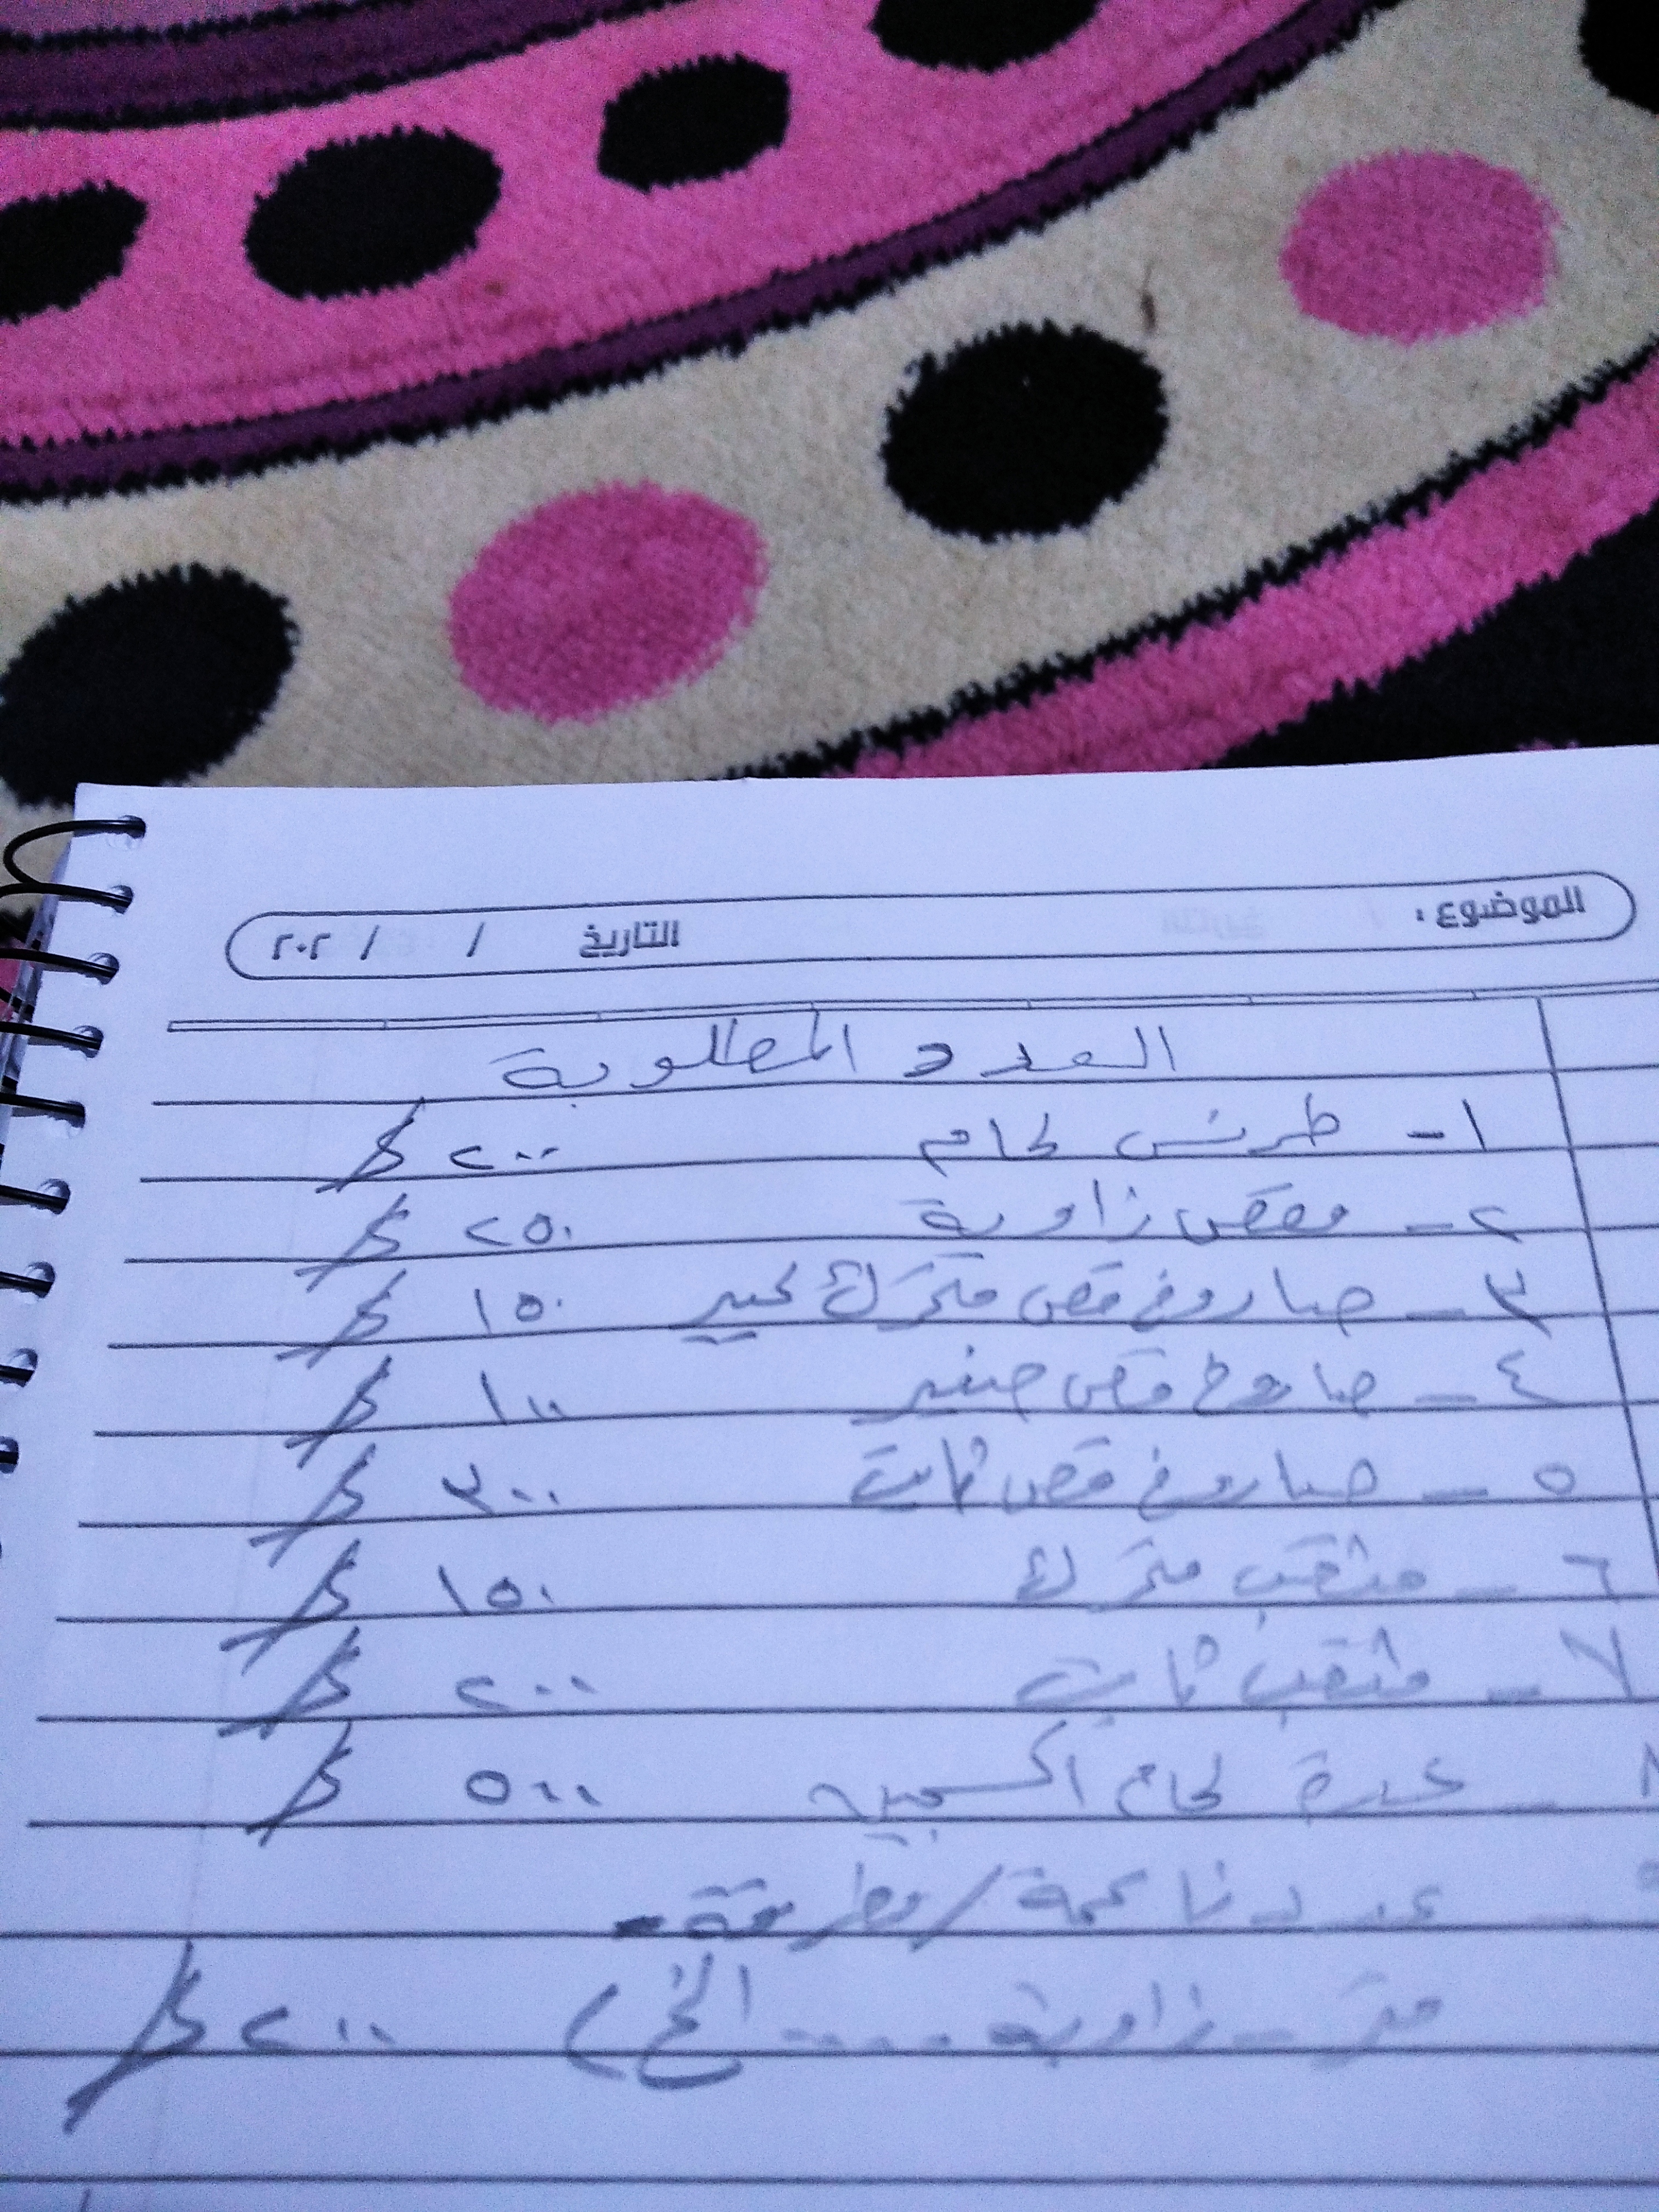 الموضوع : التاريخ / / ٢٠٢
العدد المطلوبة
١- طرنس لحام ٢٠٠ $
٢- مقص زاوية ٢٥٠ $
٣- صاروخ قص متحرك كبير ١٥٠ $
٤- صاروخ قص صغير ١٠٠ $
٥- صاروخ قص ثابت ٣٠٠ $
٦- مثقب متحرك ١٥٠ $
٧- مثقب ثابت ٢٠٠ $
٨- عدة لحام اكسجين ٥٠٠ $
٩- عدد ناعمة / مطرقة -
متر - زاوية .... الخ ) ٢٠٠ $